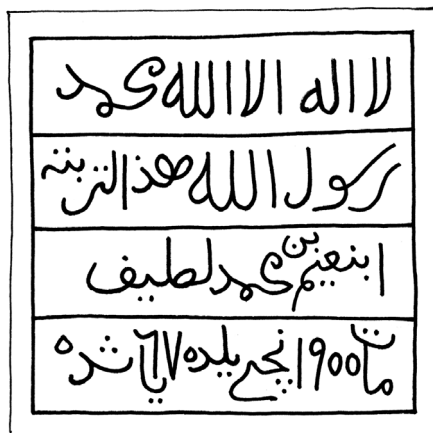 لا اله الا الله محمد
رسول الله هذالتربته
ابنعيم بن محمد لطيف
مات 1900 انچي يلده ٦٧ ياشده